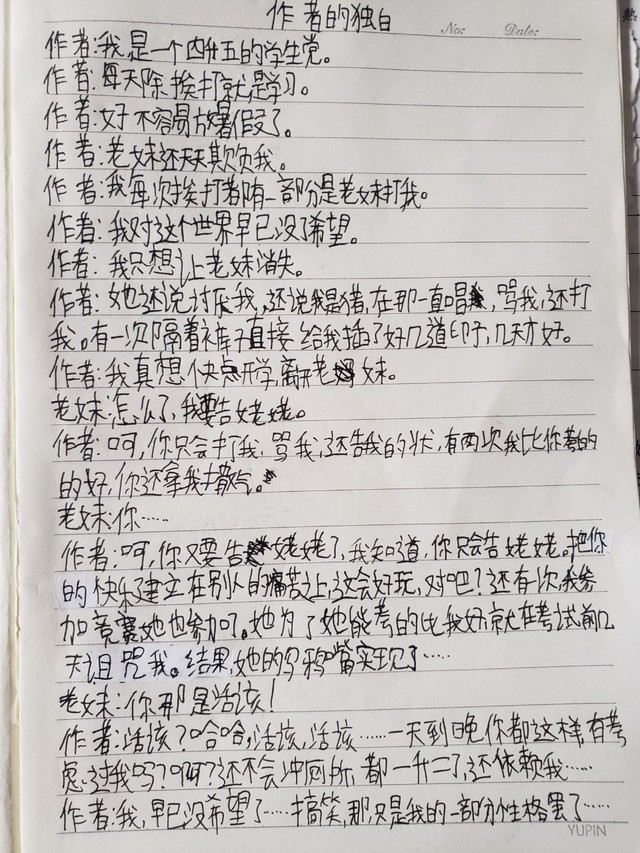 作者的独白
No:
Date:
作者:我是一个四升五的学生党。
作者:每天除挨打就是学习。
作者:好不容易放暑假了。
作者:老妹还天天欺负我。
作者:我每次挨打都有一部分是老妹打我。
作者:我对这个世界早已没了希望。
作者:我只想让老妹消失。
作者:她还说讨厌我,还说我是猪,在那一直唱,骂我,还打
我。有一次隔着裤子直接给我插了好几道印子,几天才好。
作者:我真想快点开学,离开老妹。
老妹:怎么了,我要告姥姥。
作者:呵,你只会打我,骂我,还告我的状,有两次我比你考的
的好,你还拿我撒气。
老妹:你……
作者:呵,你又要告姥姥了,我知道,你只会告姥姥。把你
的快乐建立在别人的痛苦之上,这会好玩,对吧?还有次,我参
加竞赛她也参加了。她为了她能考的比我好,就在考试前几
天诅咒我。结果,她的乌鸦嘴实现了……
老妹:你那是活该!
作者:活该?哈哈,活该,活该……一天到晚你都这样,有考
虑过我吗?啊?还不会冲厕所,都一升二了,还依赖我……
作者:我,早已没希望了……搞笑,那只是我的一部分性格罢了……
YUPIN